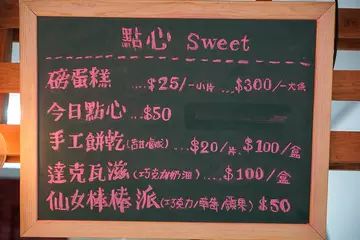 點心 Sweet
磅蛋糕 ...$25/一小片 ...$300/一大條
今日點心...$50
手工餅乾(甜/鹹)...$20/片、$100/盒
達克瓦滋(巧克力/奶油)....$100/盒
仙女棒棒派(巧克力/草莓/蘋果) $50